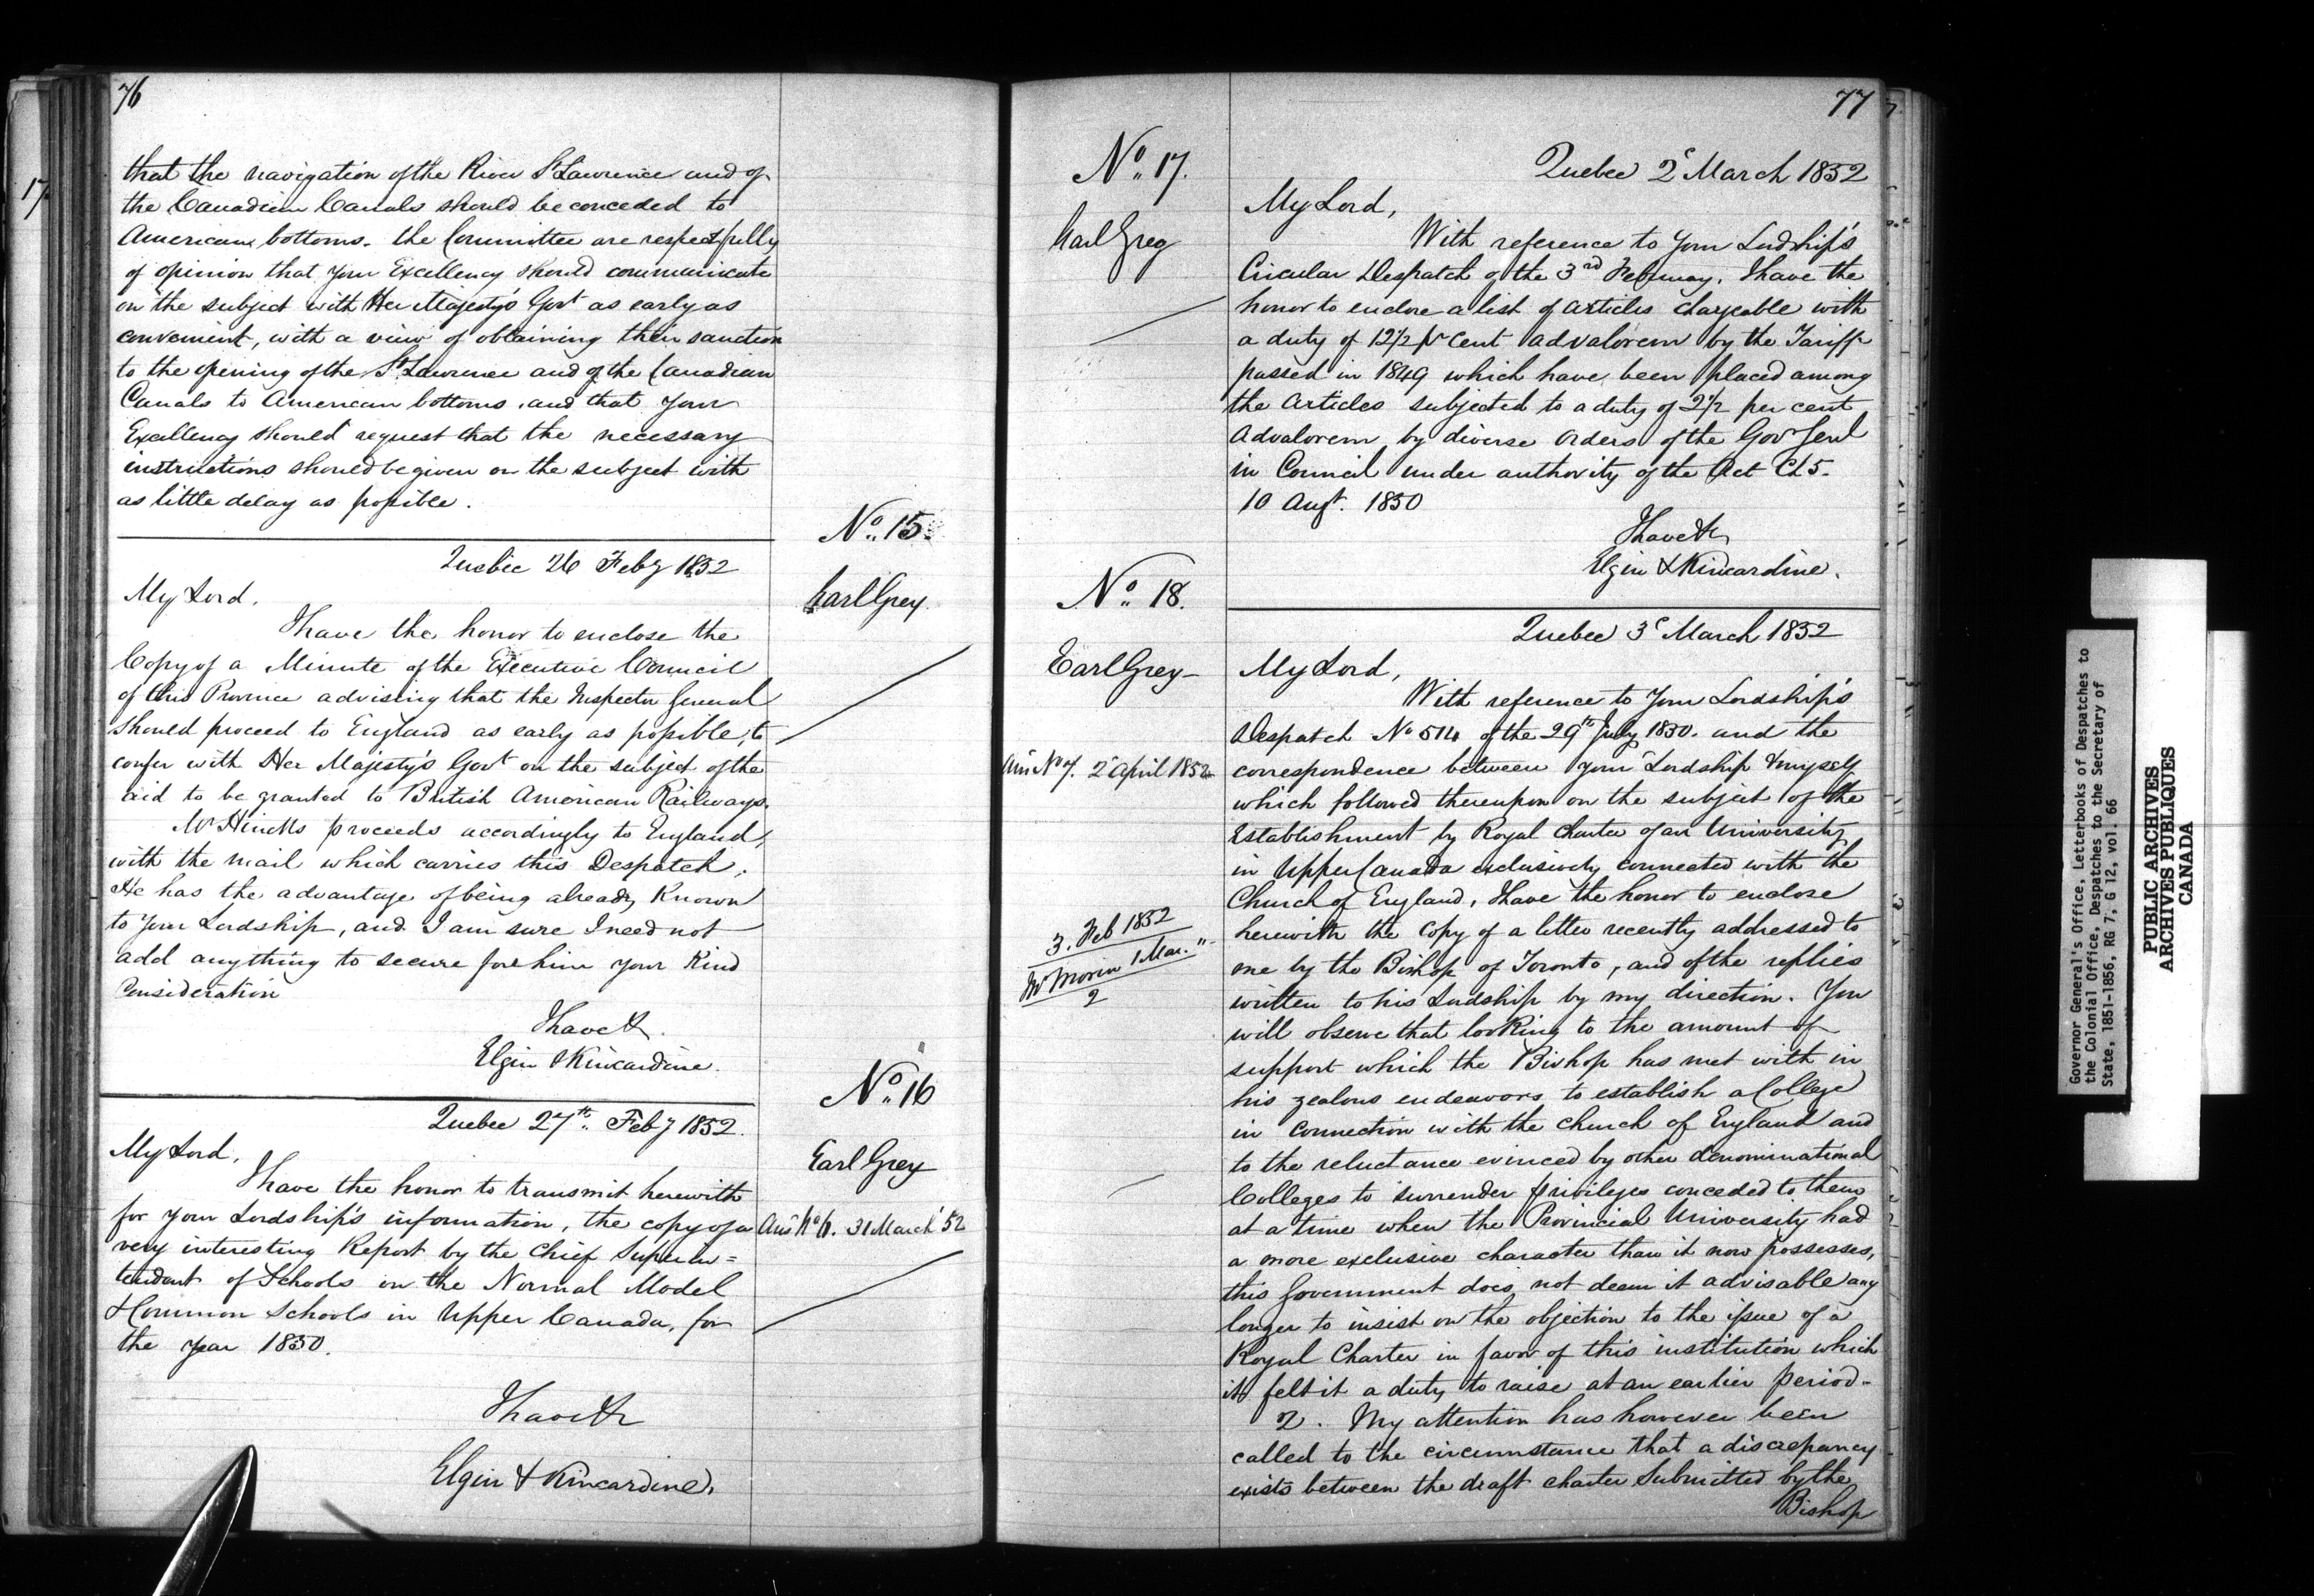 76
that the navigation of the River St Lawrence and of
the Canadian Canals should be conceded to
American bottoms. the Committee are respectfully
of opinion that your Excellency should communicate
on the subject with Her Majesty's Govt as early as
convenient, with a view of obtaining their sanction
to the opening of the St Lawrence and of the Canadian
Canals to American bottoms, and that Your
Excellency should request that the necessary
instructions should be given on the subject with
as little delay as possible.
No. 15.
Quebec 26 Feby 1852
Earl Grey.
My Lord.
I have the honor to enclose the
Copy of a Minute of the Executive Council
of this Province advising that the Inspector General
should proceed to England as early as possible, to
confer with Her Majesty's Govt on the subject of the
aid to be granted to British American Railways.
Mr Hincks proceeds accordingly to England,
with the mail which carries this Despatch.
He has the advantage of being already Known
to Your Lordship, and I am sure I need not
add anything to secure for him your Kind
Consideration
I have &c.
Elgin & Kincardine.
No. 16
Quebec 27th Feby 1852.
Earl Grey
My Lord,
I have the honor to transmit herewith
for Your Lordship's information, the copy of a
Ans No 6. 31 March '52
very interesting Report by the Chief Superin=
tendant of Schools on the Normal Model
& Common Schools in Upper Canada, for
the year 1850.
I have &c
Elgin & Kincardine.
77
No. 17.
Quebec 2d March 1852
Earl Grey
My Lord,
With reference to Your Lordship's
Circular Despatch of the 3rd February, I have the
honor to enclose a list of articles chargeable with
a duty of 12 1/2 pr cent advalorem by the Tariff
passed in 1849 which have been placed among
the Articles subjected to a duty of 2 1/2 per cent
Advalorem by diverse Orders of the Govr Genl
in Council under authority of the Act Ch 5.
10 Augt. 1850
I have &c
Elgin & Kincardine.
No. 18.
Quebec 3d March 1852
Earl Grey
My Lord,
With reference to Your Lordship's
Despatch No 514 of the 29th July 1850. and the
Ans No 7. 2d April 1852
correspondence between your Lordship & myself
which followed thereupon on the subject of the
Establishment by Royal Charter of an University
in Upper Canada exclusively connected with the
Church of England, I have the honor to enclose
3. Feb 1852
herewith the copy of a letter recently addressed to
Mr Morin 1 Mar. "
2
me by the Bishop of Toronto, and of the replies
written to his Lordship by my direction. You
will observe that looking to the amount of
support which the Bishop has met with in
his zealous endeavors to establish a College
in connection with the Church of England and
to the reluctance evinced by other denominational
Colleges to surrender privileges conceded to them
at a time when the Provincial University had
a more exclusive character than it now possesses,
this Government does not deem it advisable any
longer to insist on the objection to the issue of a
Royal Charter in favor of this institution which
it felt it a duty to raise at an earlier period.
2. My attention has however been
called to the circumstance that a discrepancy
exists between the draft charter submitted by the
Bishop
Governor General's Office, Letterbooks of Despatches to
the Colonial Office, Despatches to the Secretary of
State, 1851-1856, RG 7, G 12, vol. 66
PUBLIC ARCHIVES
ARCHIVES PUBLIQUES
CANADA